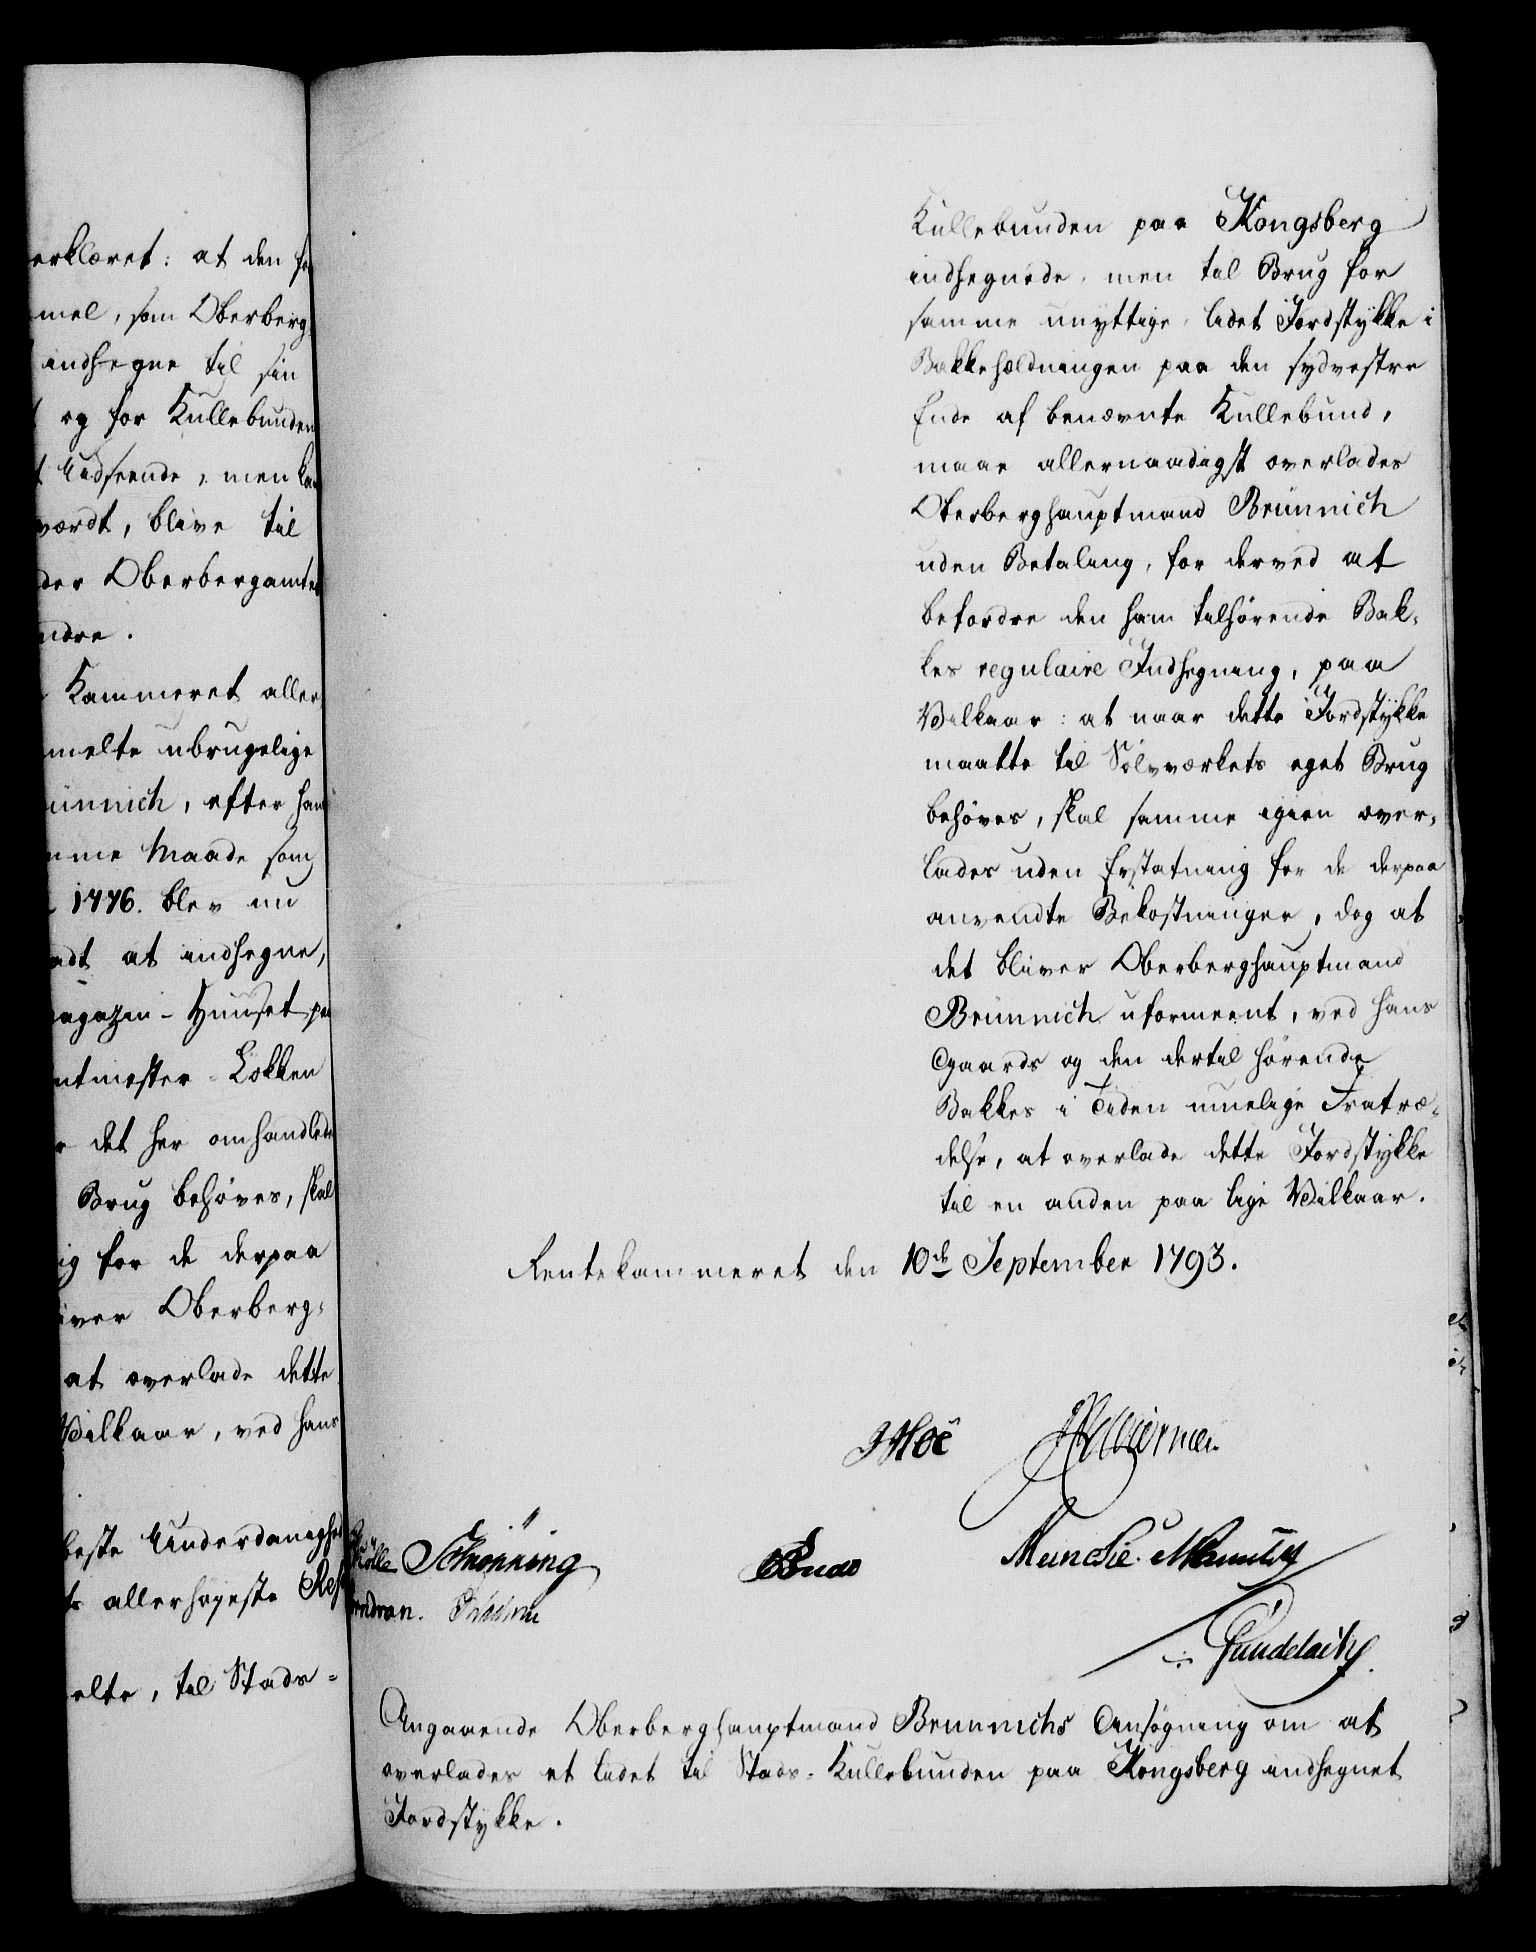 erklæret: at den
mel, som Oberberg
indhegne til sin
og for Kullebunden
Udseende, men
værdt, blive til
der Oberbergamtes
ndre.
Kammeret aller
melte ubrugelige
ünnich, efter hans
mme Maade som
1776. blev un
adt at indhegne,
agazin-Huuset paa
ntmester Løkken
det her omhandlede
Brug behøves, skal
ig for de derpaa
iver Oberberg-
at overlade dette
Vilkaar, ved hans
beste Underdanighed
allerhøyeste
elte, til Stads-
Kullebunden paa Kongsberg
indhegnede, men til Brug for
samme unyttige, lidet Jordstykke i
Bakkehældningen paa den sydvestre
Ende af benævnte Kullebund,
maae allernaadigst overlades
Oberberghauptmand Brünnich
uden Betaling, for derved at
befordre den ham tilhørende Bak-
kes regulaire Indhegning, paa
Vilkaar: at naar dette Jordstykke
maatte til Sølvværkets eget Brug
behøves, skal samme igien over-
lades uden Erstatning for de derpaa
anvendte Bekostninger, dog at
det bliver Oberberghauptmand
Brünnich uformeent, ved hans
Gaards og den dertil hørende
Bakkes i Tiden muelige Fratræ-
delse, at overlade dette Jordstykke
til en anden paa lige Vilkaar.
Rentekammeret den 10de September 1793.
JHoë
Schønning
Gundelach
Angaaende Oberberghauptmand Brünnichs Ansøgning om at
overlades et lidet til Stads-Kullebunden paa Kongsberg indhegnet
Jordstykke.